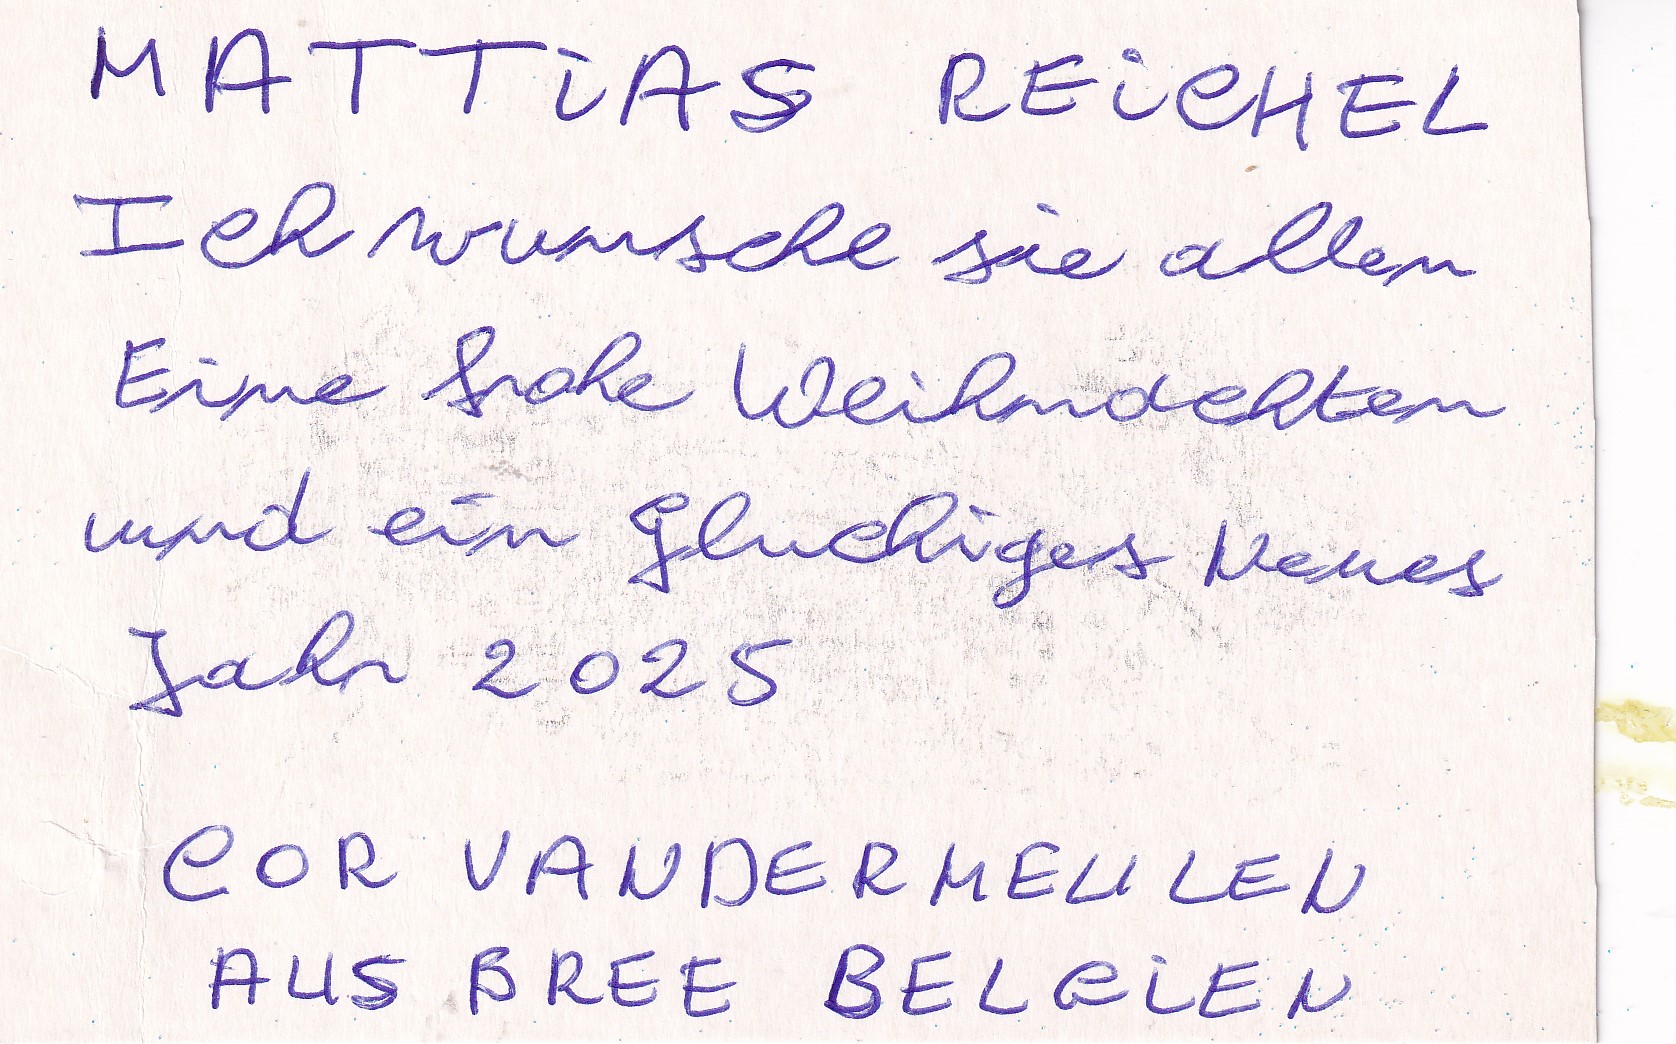 MATTiAS REiCHEL
Ich wunsche sie allen
Eine frohe Weihnachten
und ein gluchiges Neues
Jahr 2025
COR VANDERMEULEN
AUS BREE BELGiEN